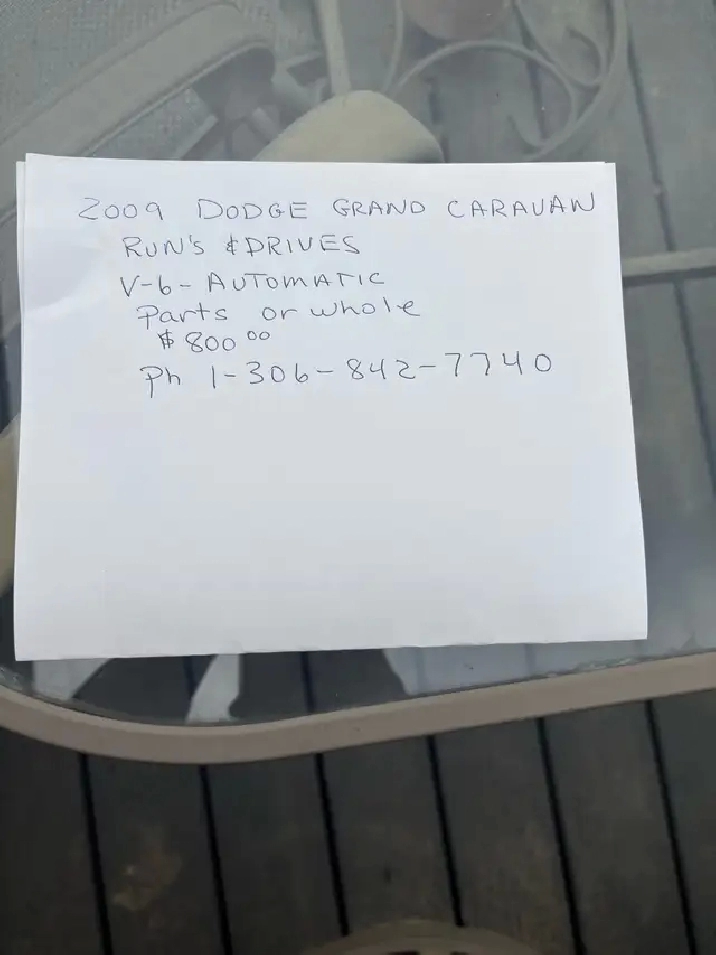 2009 DODGE GRAND CARAVAN
RUN'S & DRIVES
V-6- AUTOMATIC
Parts or whole
$800 00
Ph 1-306-842-7740